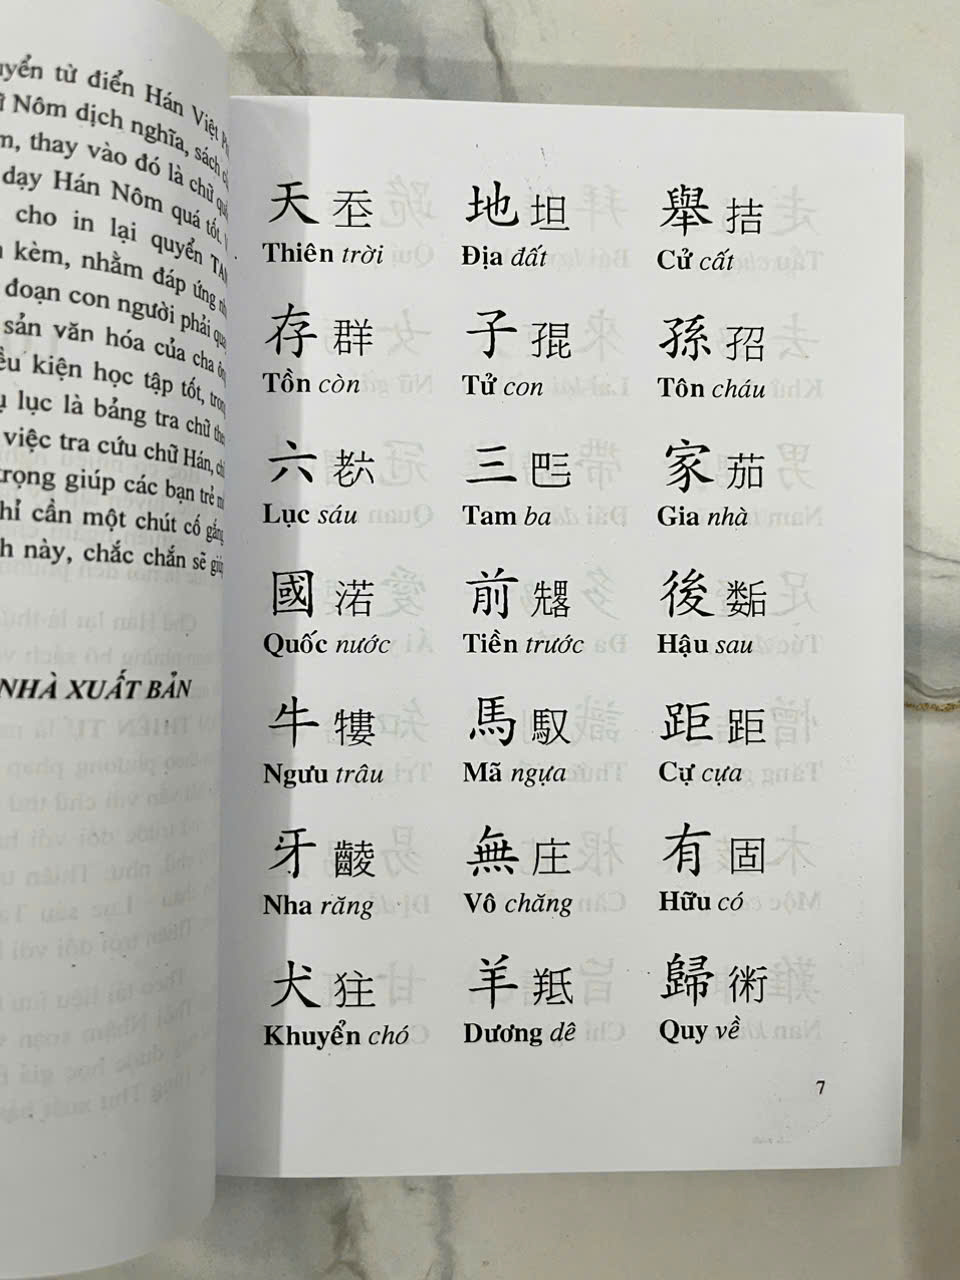 uyển từ điển Hán Việt
Nôm dịch nghĩa, sách
thay vào đó là chữ
dạy Hán Nôm quá tốt.
cho in lại quyển
kèm, nhằm đáp ứng
đoạn con người phải
sản văn hóa của cha
kiện học tập tốt,
lục là bảng tra chữ
việc tra cứu chữ Hán,
trọng giúp các bạn trẻ
cần một chút cố gắng
này, chắc chắn sẽ
NHÀ XUẤT BẢN
天 𡗶 地 坦 舉 拮
Thiên trời Địa đất Cử cất
存 群 子 𡥵 孫 𡥙
Tồn còn Tử con Tôn cháu
六 𦒹 三 𠀧 家 茄
Lục sáu Tam ba Gia nhà
國 渃 前 後 𡢐
Quốc nước Tiền trước Hậu sau
牛 𤛠 馬 馭 距 距
Ngưu trâu Mã ngựa Cự cựa
牙 𪘵 無 庄 有 固
Nha răng Vô chăng Hữu có
犬 㹥 羊 羝 歸 術
Khuyển chó Dương dê Quy về
7